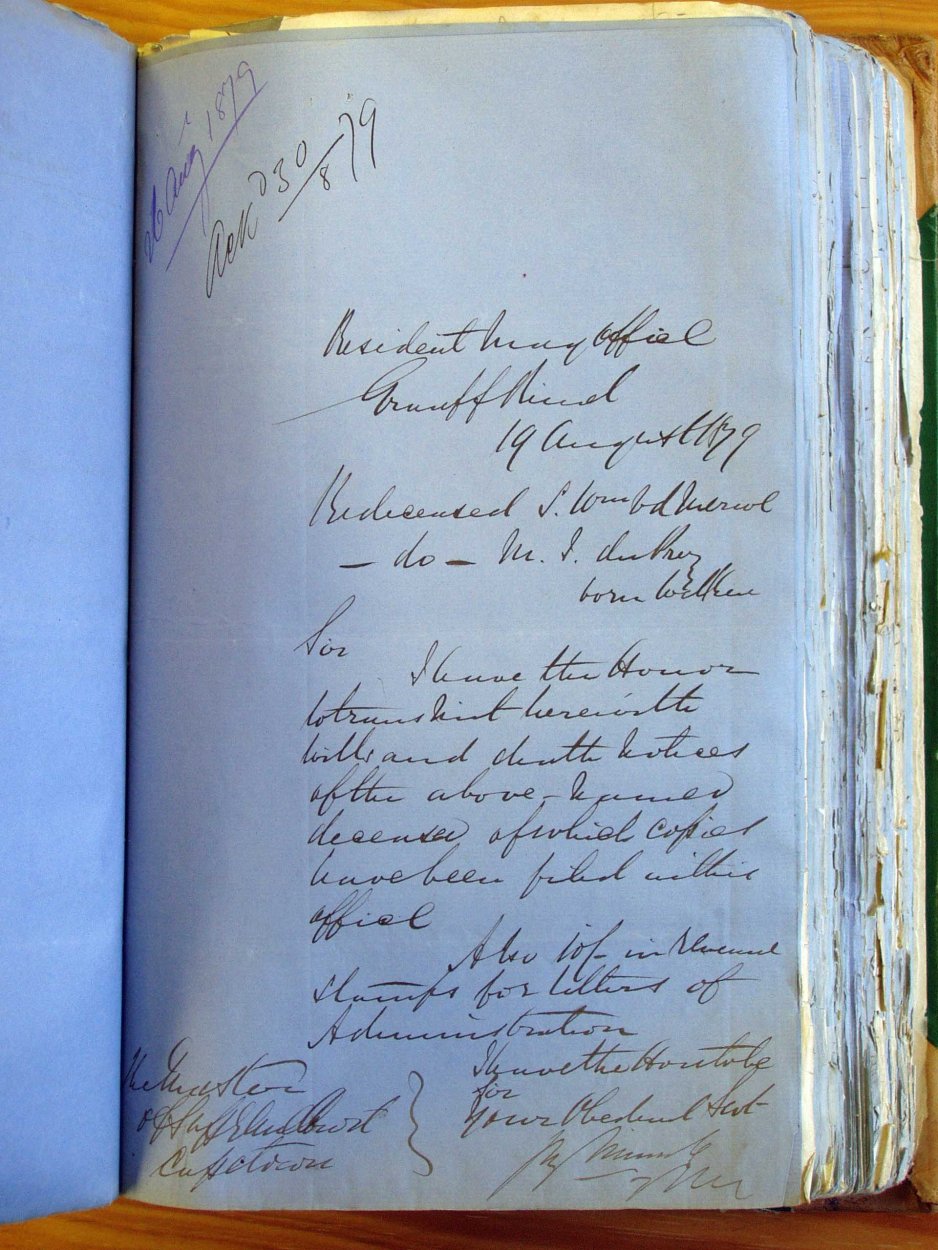 26 Aug 1879
Ack d 30/8 79
Resident Mag Office
Graaff Reinet
19 August 1879
Re deceased S. W v d Merwe
– do – M. J. du Prez
born Wilken
Sir
I have the Honor
to transmit herewith
wills and death notices
of the above-named
deceased of which copies
have been filed in this
office
Also 10/- in Revenue
stamps for letters of
Administration
I have the Hon to be
Sir
Your Obedient Servt
The Master
of the Supreme Court
Capetown